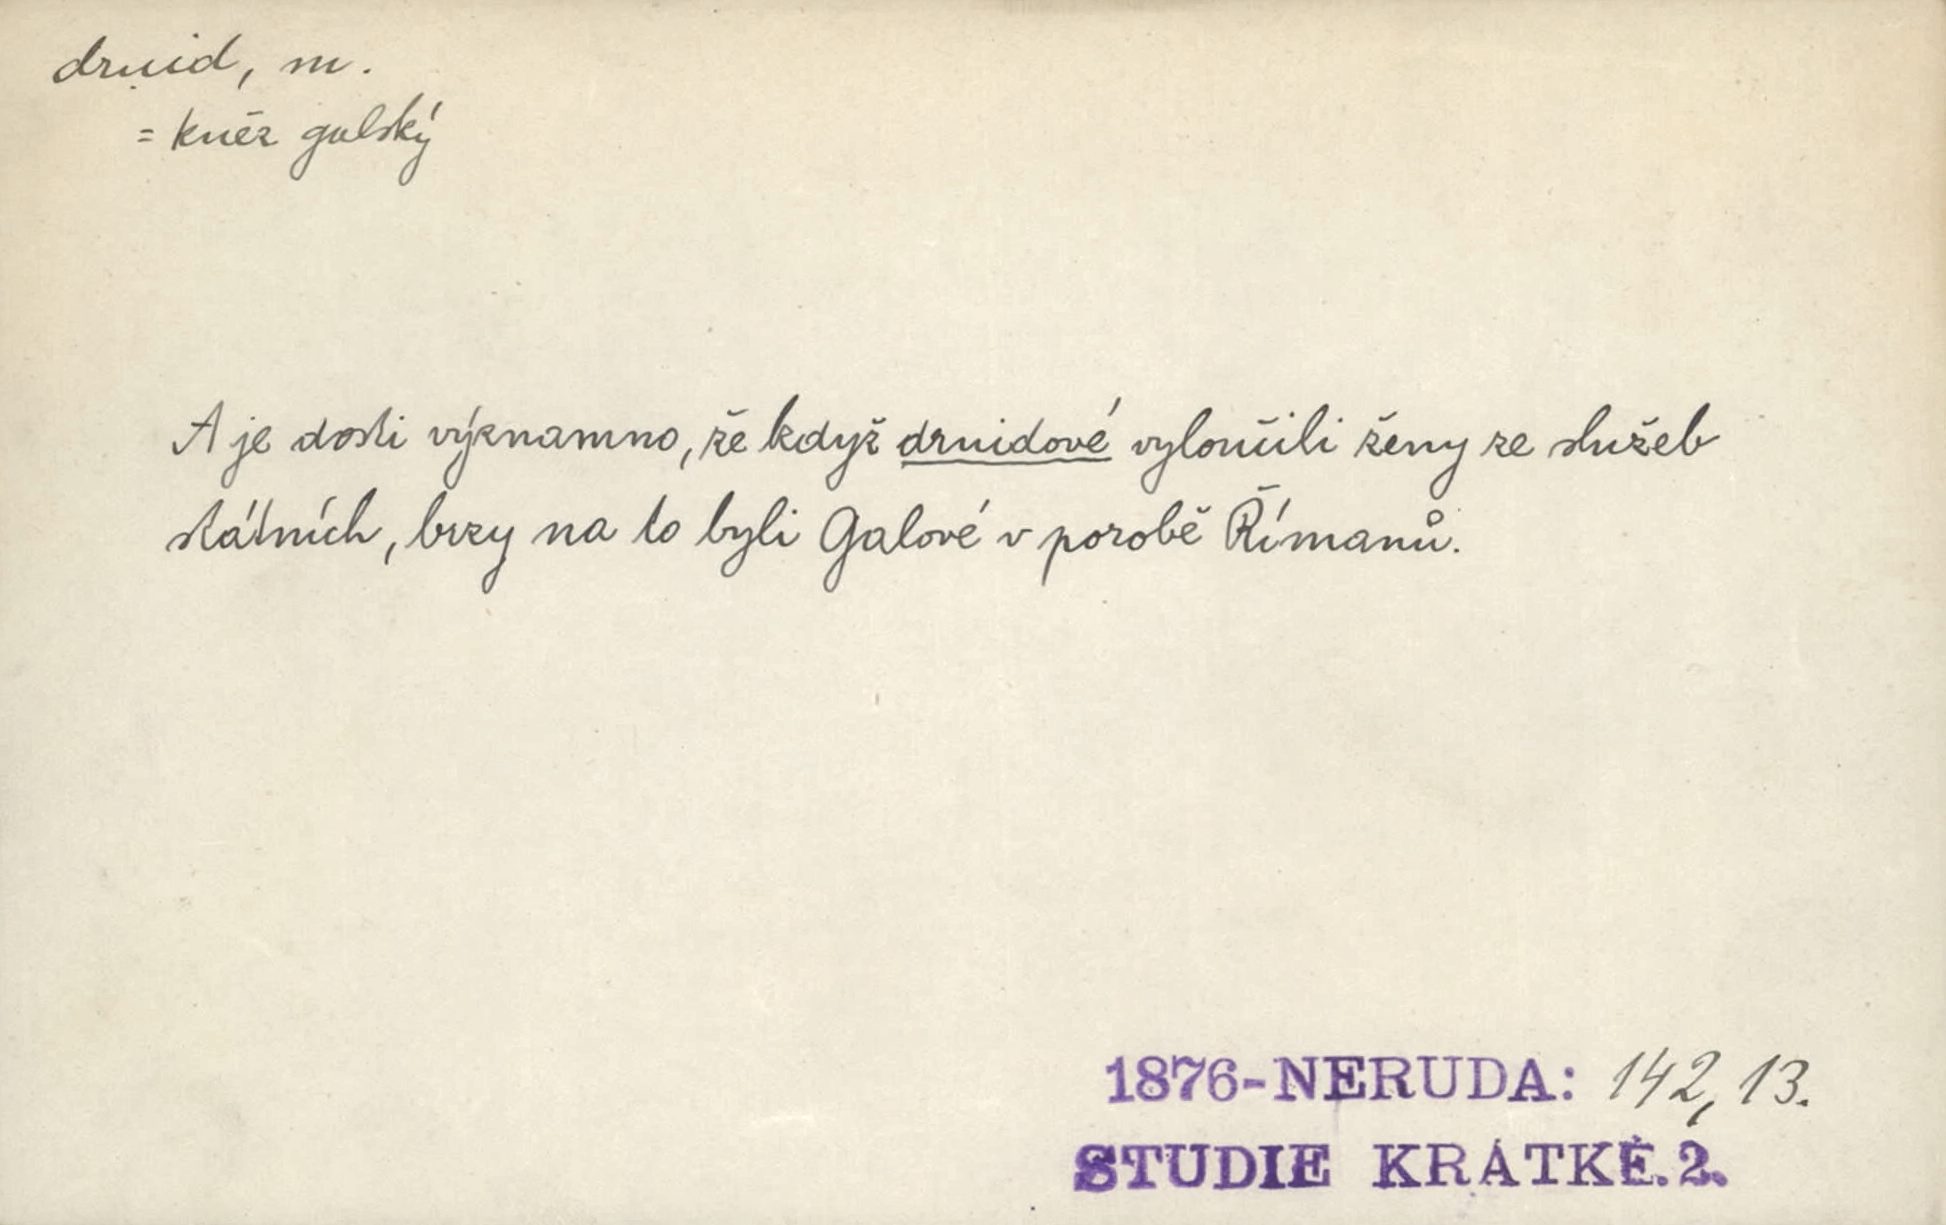 druid, m.
= kněz galský
A je dosti významno, že když druidové vyloučili ženy ze služeb
státních, brzy na to byli Galové v porobě Římanů.
1876-NERUDA: 142, 13.
STUDIE KRÁTKÉ. 2.